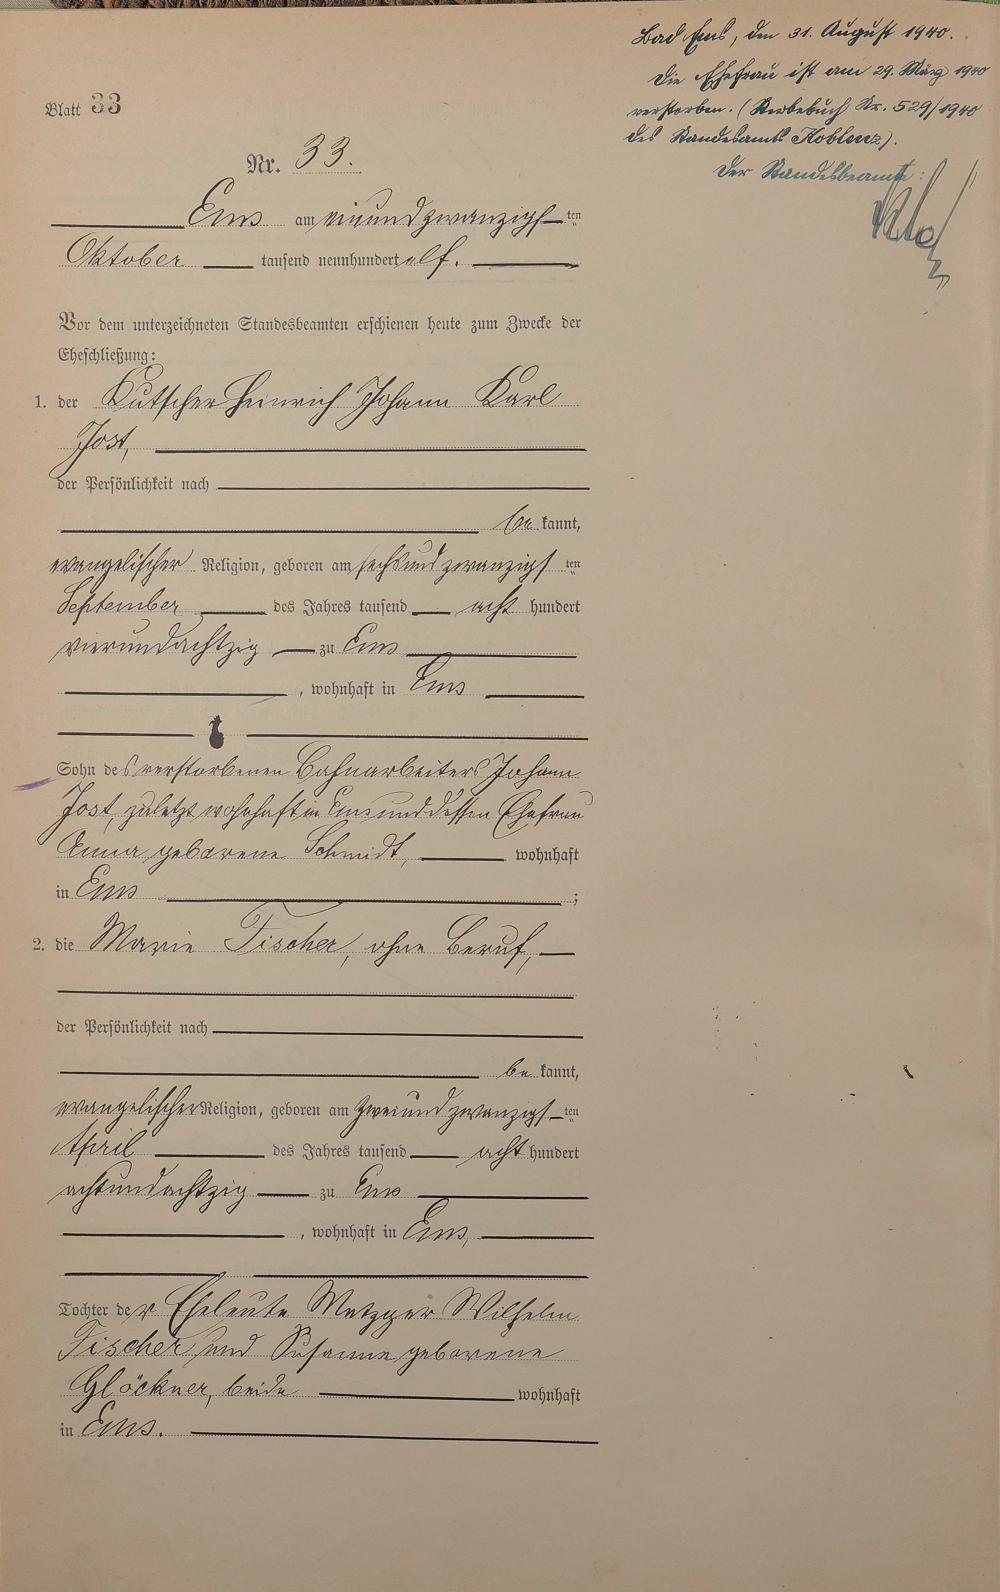 Blatt 33
Bad Ems, den 31. August 1940.
Die Ehefrau ist am 29. März 1940
verstorben. (Sterbebuch Nr. 529/1940
des Standesamts Koblenz).
Der Standesbeamte:
Nr. 33.
Ems am einundzwanzigsten
Oktober tausend neunhundert elf.
Vor dem unterzeichneten Standesbeamten erschienen heute zum Zwecke der
Eheschließung:
1. der Kutscher Heinrich Johann Karl
Jost,
der Persönlichkeit nach
be kannt,
evangelischer Religion, geboren am sechsundzwanzigsten
September des Jahres tausend acht hundert
vierundachtzig zu Ems
, wohnhaft in Ems
Sohn des verstorbenen Bahnarbeiters Johann
Jost, zuletzt wohnhaft in Ems und dessen Ehefrau
Anna geborene Schmidt, wohnhaft
in Ems ;
2. die Marie Fischer, ohne Beruf,
der Persönlichkeit nach
be kannt,
evangelischer Religion, geboren am zweiundzwanzigsten
April des Jahres tausend acht hundert
achtundachtzig zu Ems
, wohnhaft in Ems,
Tochter der Eheleute Metzger Wilhelm
Fischer und Susanne geborene
Glöckner, beide wohnhaft
in Ems.